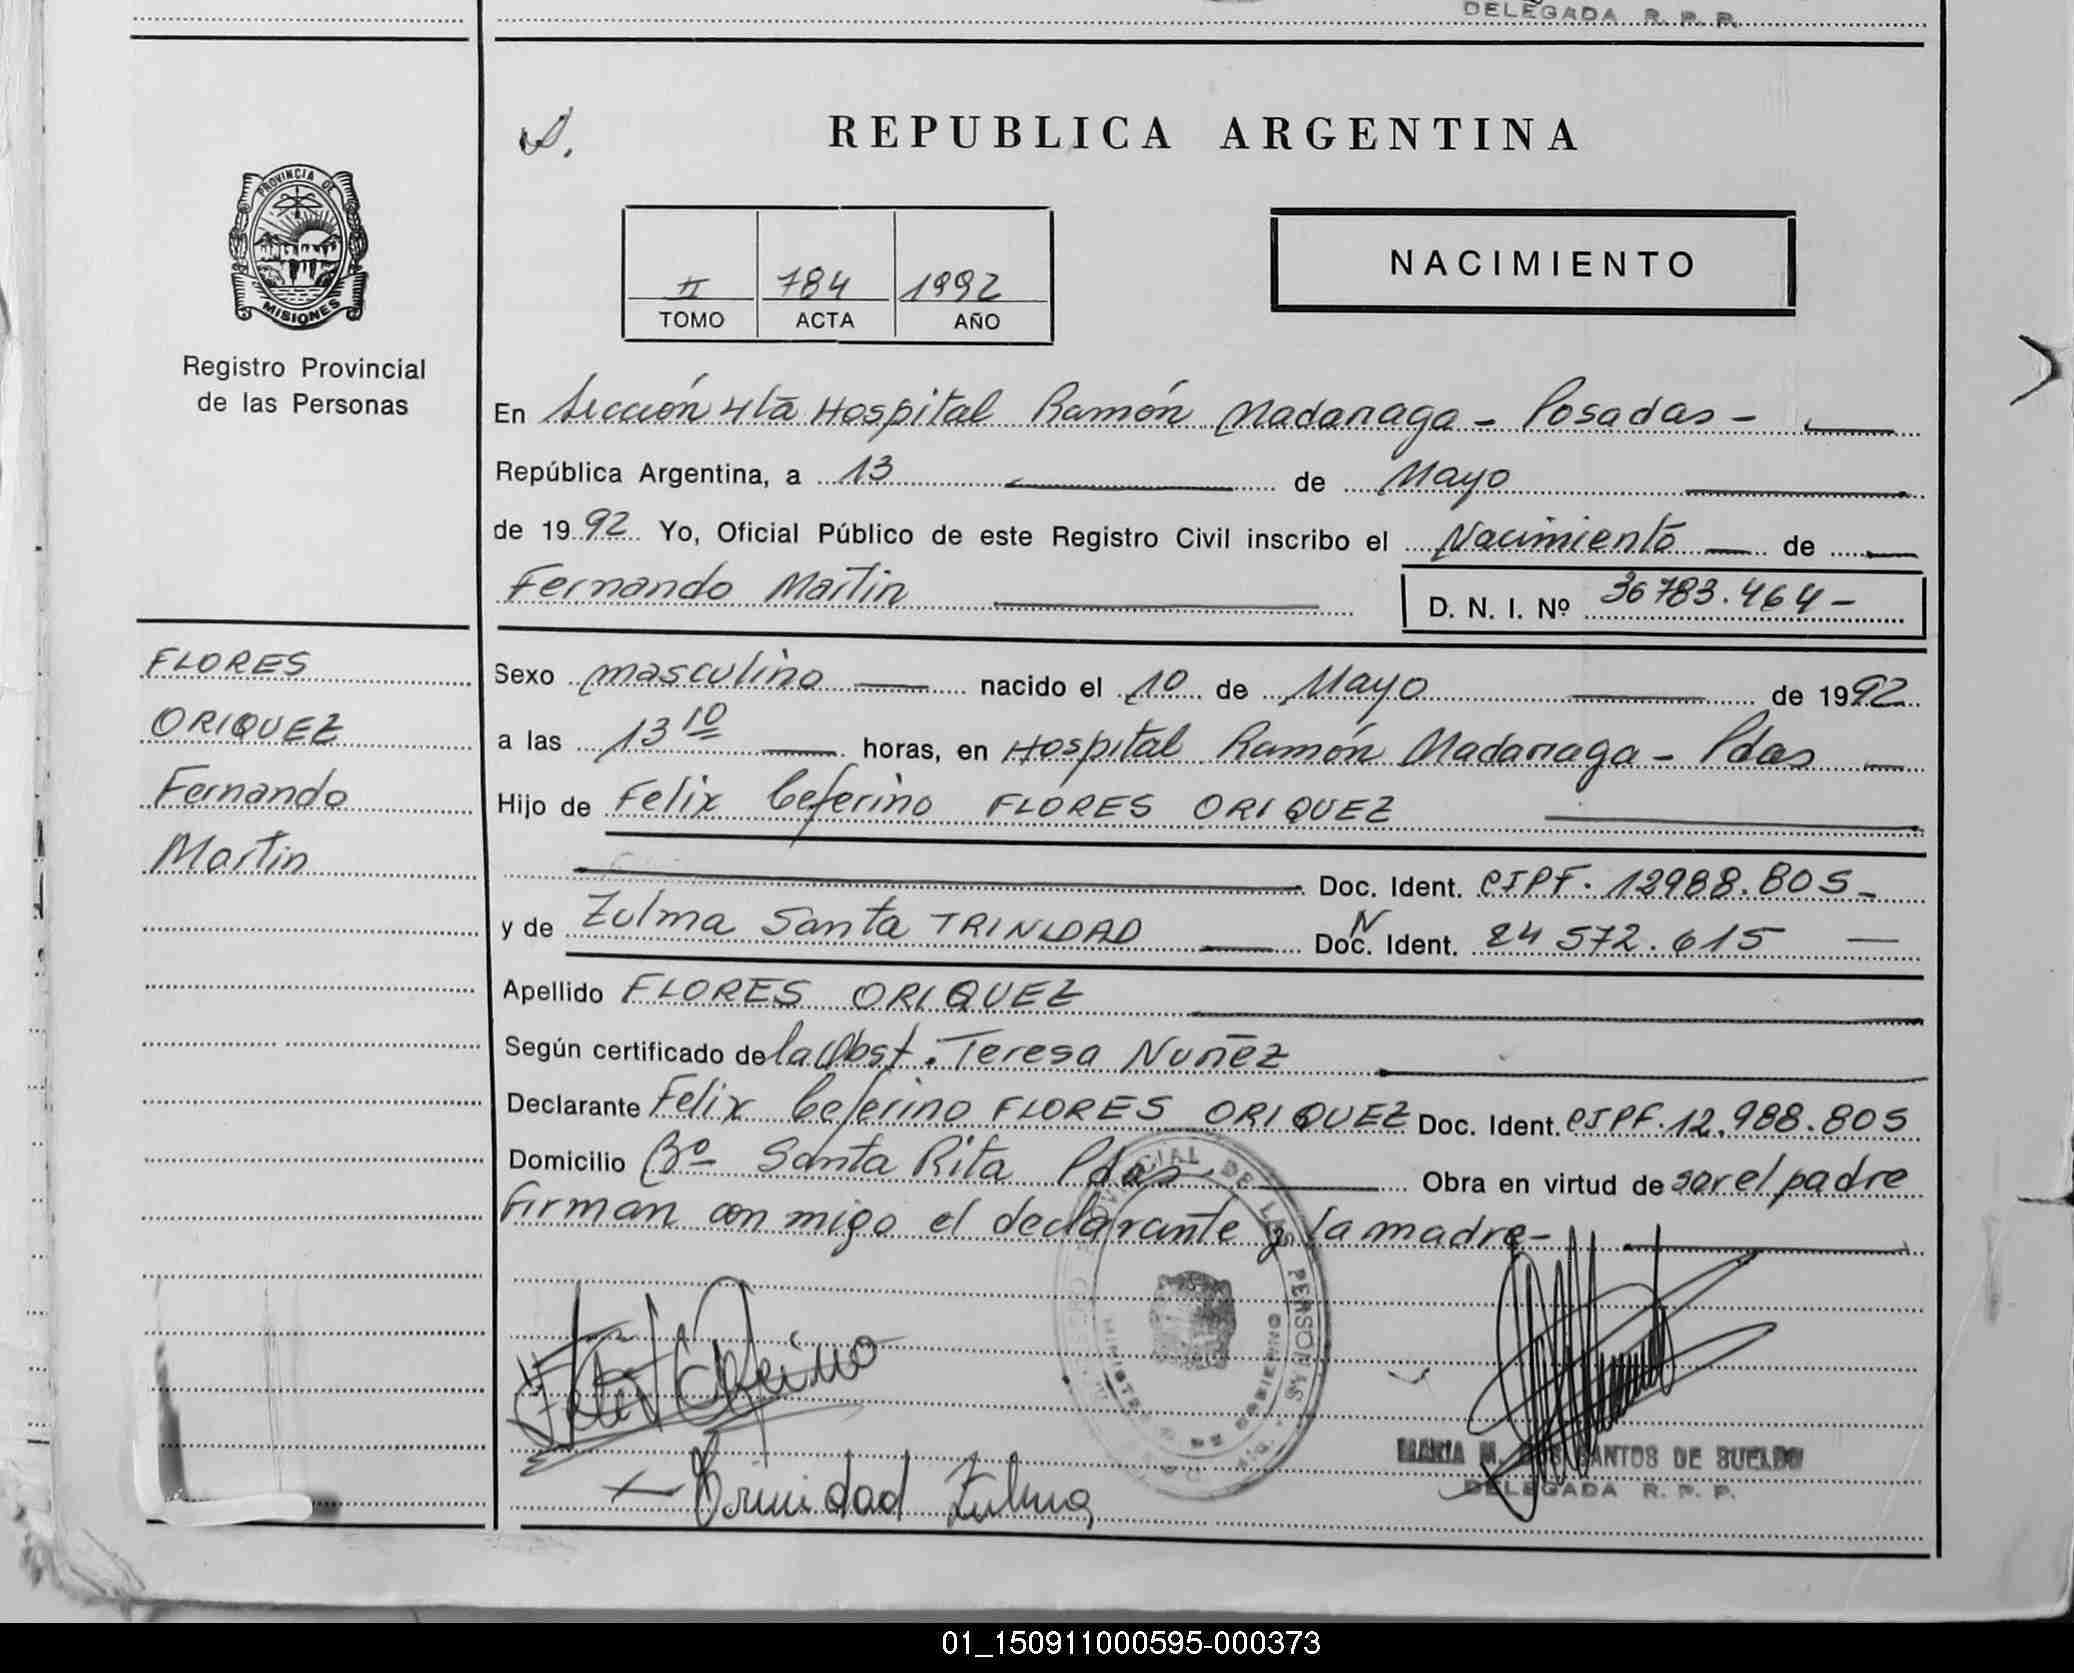 DELEGADA R. P. P.
REPUBLICA ARGENTINA
PROVINCIA DE
MISIONES
Registro Provincial
de las Personas
II 784 1992
TOMO ACTA AÑO
NACIMIENTO
En Sección 4ta Hospital Ramón Madariaga - Posadas -
República Argentina, a 13 de Mayo
de 1992 Yo, Oficial Público de este Registro Civil inscribo el Nacimiento de
Fernando Martin
D. N. I. Nº 36783.464-
FLORES
ORIQUEZ
Fernando
Martin
Sexo masculino nacido el 10 de Mayo de 1992
a las 13 10 horas, en Hospital Ramón Madariaga - Pdas
Hijo de Felix Ceferino FLORES ORIQUEZ
Doc. Ident. CIPF. 12988.805-
y de Zulma Santa TRINIDAD Doc. N Ident. 24 572.615
Apellido FLORES ORIQUEZ
Según certificado de la Obst. Teresa Nuñez
Declarante Felix Ceferino FLORES ORIQUEZ Doc. Ident. CIPF. 12.988.805
Domicilio Bº Santa Rita Pdas Obra en virtud de ser el padre
Firman con migo el declarante y la madre-
Felix Ceferino
Trinidad Zulma
MARIA M. DOS SANTOS DE SUELDO
DELEGADA R. P. P.
01_150911000595-000373